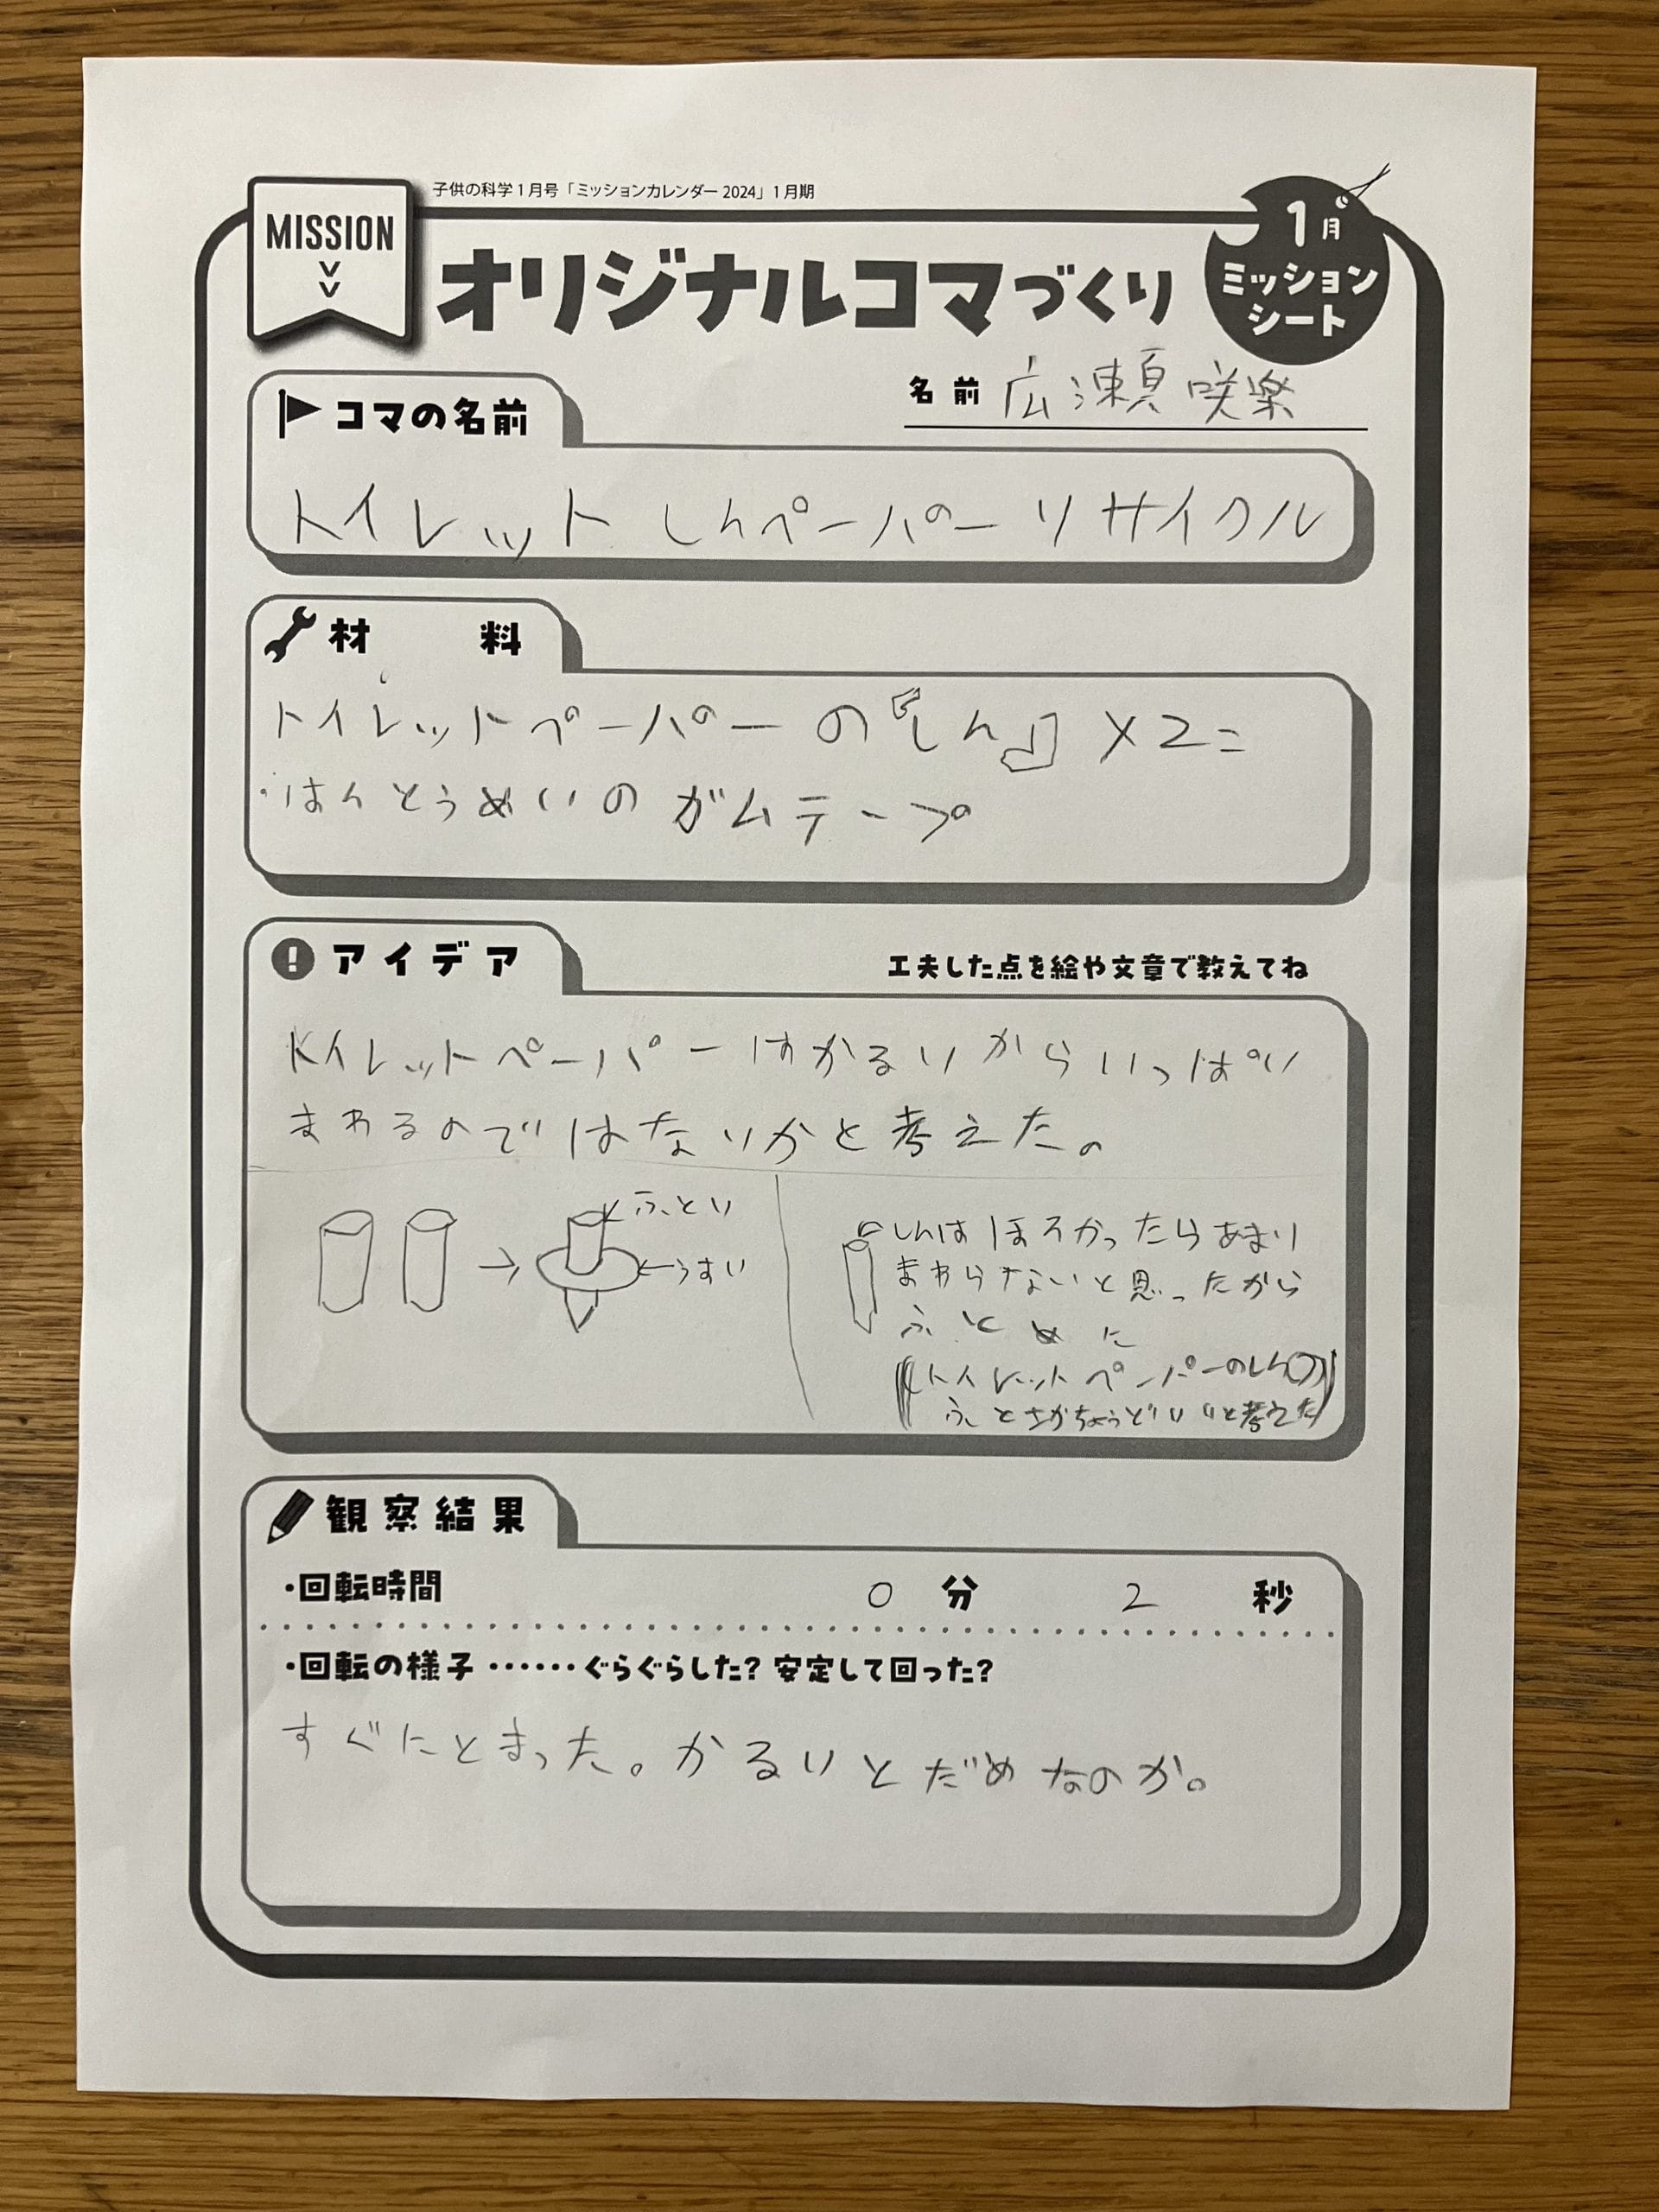 子供の科学1月号「ミッションカレンダー2024」1月期
MISSION
オリジナルコマづくり
1月
ミッション
シート
名前 広瀬咲楽
コマの名前
トイレットしんペーパーリサイクル
材料
トイレットペーパーの『しん』×2=
・はんとうめいのガムテープ
アイデア
工夫した点を絵や文章で教えてね
トイレットペーパーはかるいからいっぱい
まわるのではないかと考えた。
ふとい
うすい
しんはほそかったらあまり
まわらないと思ったから
ふとめに
(トイレットペーパーのしんの)
ふとさがちょうどいいと考えた
観察結果
・回転時間 0分 2秒
・回転の様子……ぐらぐらした?安定して回った?
すぐにとまった。かるいとだめなのか。